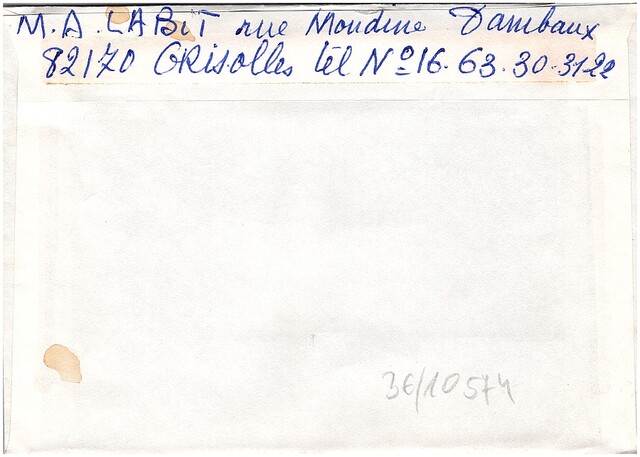 M. A. LABIT rue Moudine Dambaux
82170 GRISOLLES tél Nº 16. 63. 30. 31 22
36/10574